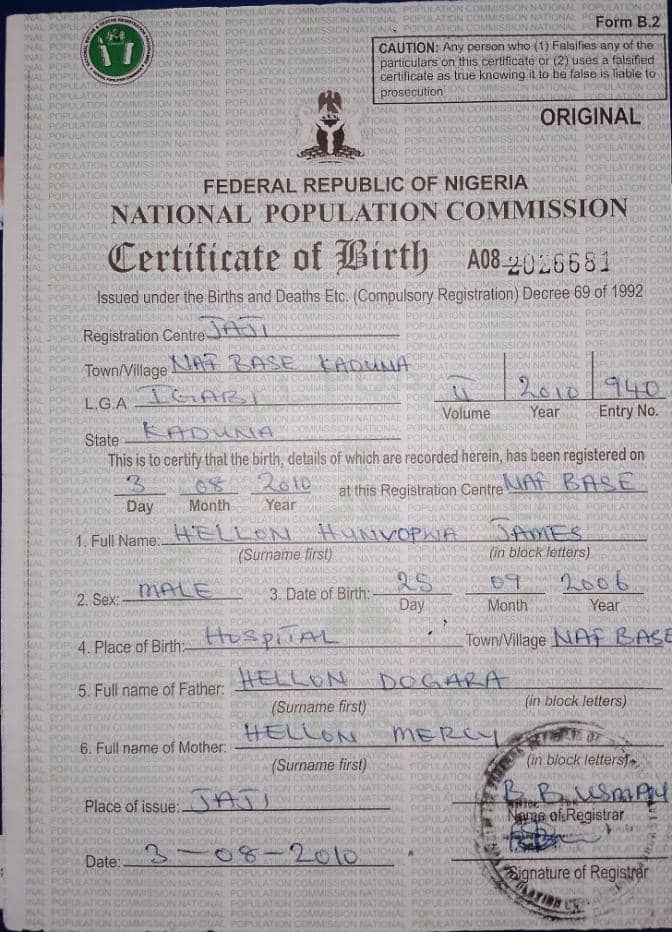 Form B.2
CAUTION: Any person who (1) Falsifies any of the
particulars on this certificate or (2) uses a falsified
certificate as true knowing it to be false is liable to
prosecution
ORIGINAL
FEDERAL REPUBLIC OF NIGERIA
NATIONAL POPULATION COMMISSION
Certificate of Birth A08 2026681
Issued under the Births and Deaths Etc. (Compulsory Registration) Decree 69 of 1992
Registration Centre JAJI
Town/Village NAF BASE KADUNA
L.G.A IGABI
II 2010 940
Volume Year Entry No.
State KADUNA
This is to certify that the birth, details of which are recorded herein, has been registered on
3 08 2010 at this Registration Centre NAF BASE
Day Month Year
1. Full Name: HELLON JAMES
(Surname first) (in block letters)
2. Sex: MALE 3. Date of Birth: 25 09 2006
Day Month Year
4. Place of Birth: HOSPITAL Town/Village NAF BASE
5. Full name of Father: HELLON DOGARA
(Surname first) (in block letters)
6. Full name of Mother: HELLON MERCY
(Surname first) (in block letters)
Place of issue: JAJI B. B. USMAN
Name of Registrar
Date: 3-08-2010
Signature of Registrar